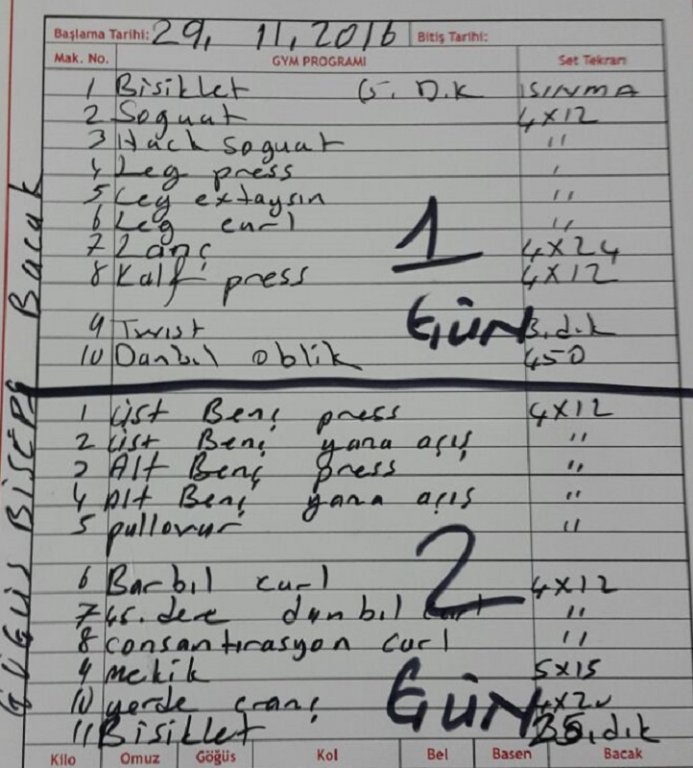 Başlama Tarihi: 29, 11, 2016 Bitiş Tarihi:
Mak. No. GYM PROGRAMI Set Tekrarı
1 Bisiklet 5. D.K ISINMA
2 Soguat 4x12
3 Hack soguat "
4 Leg press "
5 Leg extaysın "
6 Leg curl "
7 Lanç 4x24
8 Kalf press 4x12
9 Twıst 3.d.k
10 Danbıl oblik 450
Bacak
1 GÜN
1 üst Benç press 4x12
2 üst Benç yana açış "
3 Alt Benç press "
4 Alt Benç yana açış "
5 pullovur "
6 Barbıl curl 4x12
7 45. dere danbıl curl "
8 consantırasyon curl "
9 mekik 5x15
10 yerde cranç 4x20
11 Bisiklet 25.d.k
GÖĞÜS BİSEPS
2 GÜN
Kilo Omuz Göğüs Kol Bel Basen Bacak